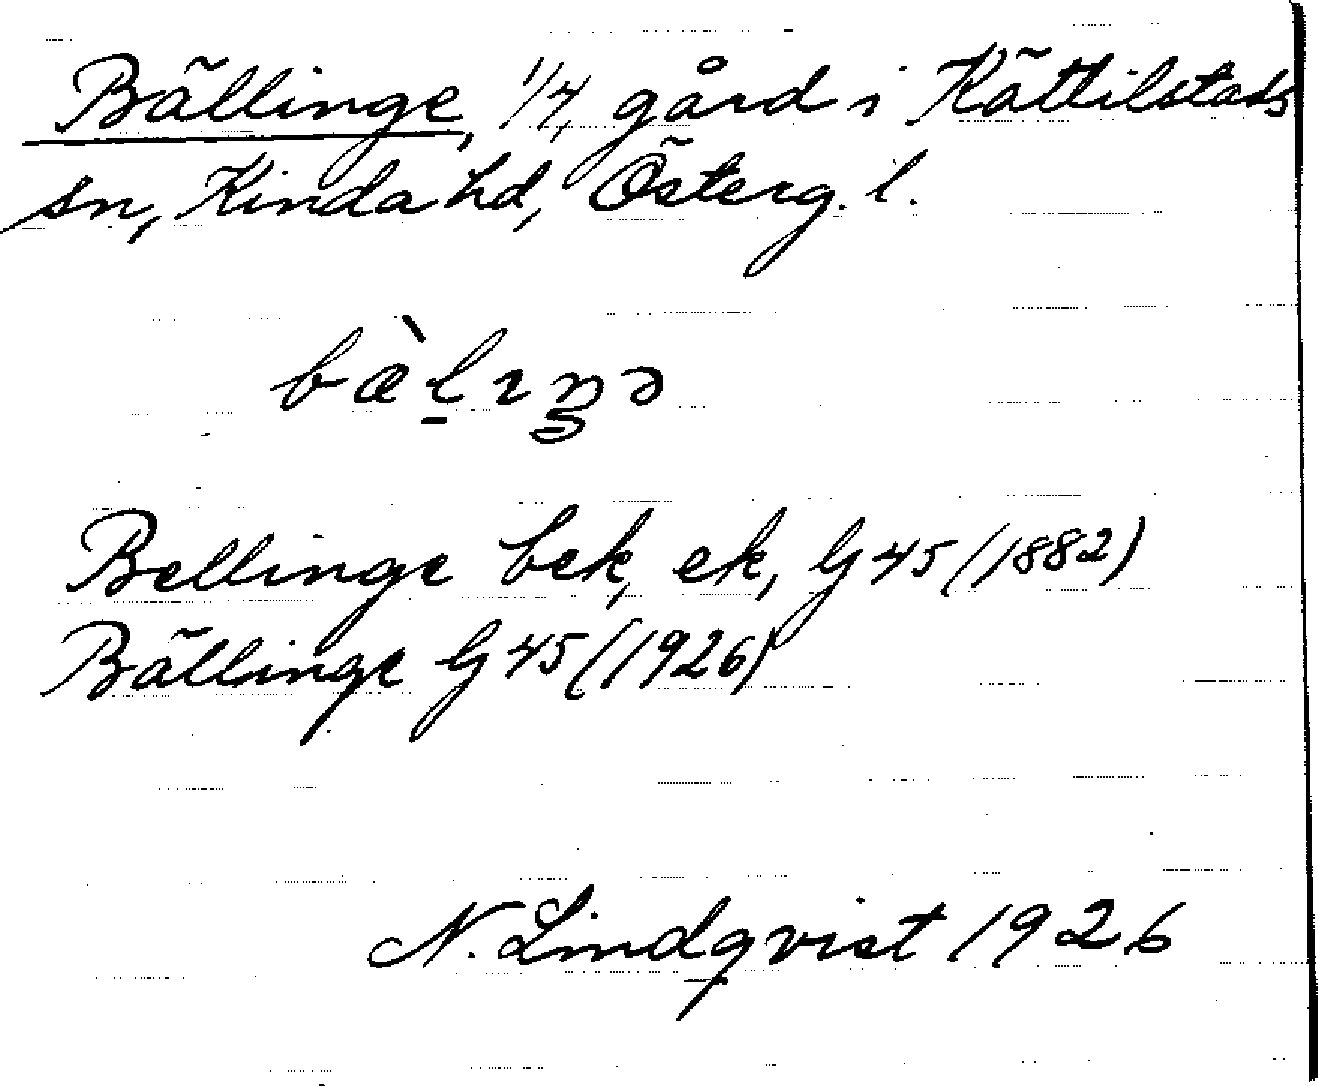 Bällinge, 1/4, gård i Kättilstads
sn, Kinda hd, Österg. l.
bæ̀l̠ıŋə
Bellinge bek, ek, G 45 (1882)
Bällinge G 45 (1926)
N. Lindqvist 1926